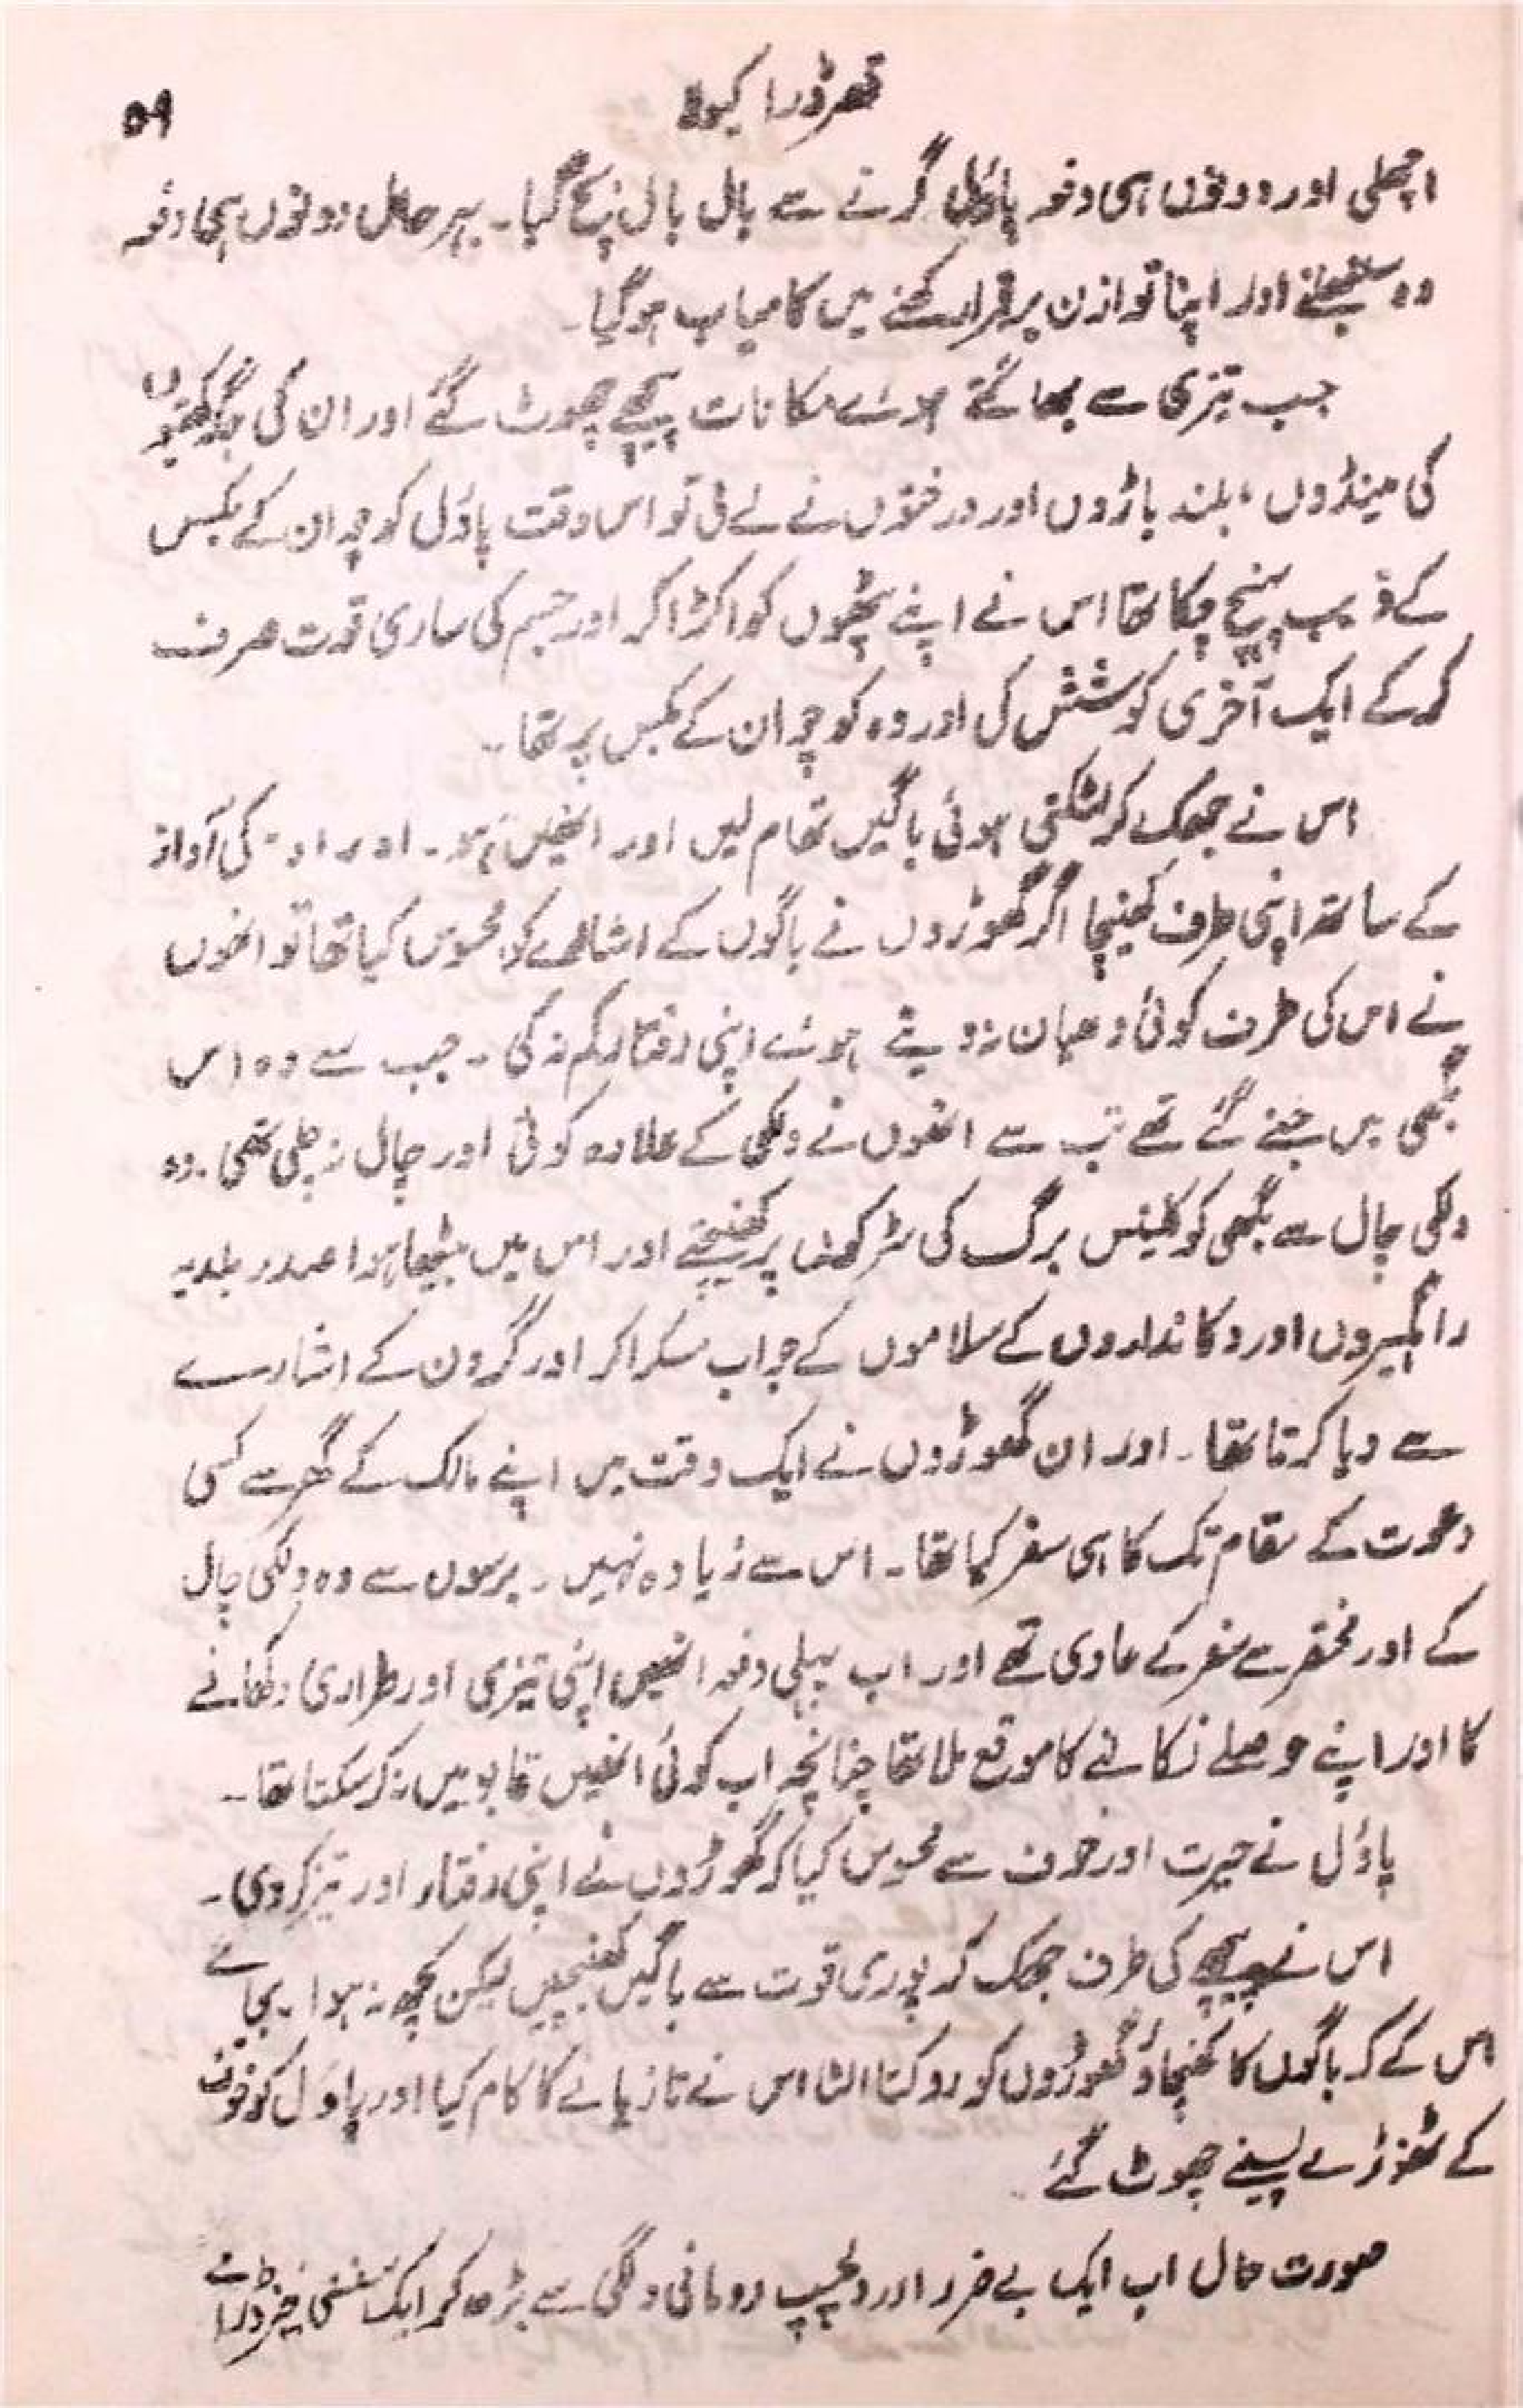 قہر ڈرا کیولا
۵۹
اچھلی اور دونوں ہی دفعہ پاؤل گرنے سے بال بال بچ گیا۔ بہر حال دونوں ہی دفعہ
وہ سنبھلنے اور اپنا توازن برقرار رکھنے میں کامیاب ہو گیا۔
جب تیزی سے بھاگتے ہوئے مکانات پیچھے چھوٹ گئے اور ان کی جگہ کھیتوں
کی مینڈوں، بلند باڑوں اور درختوں نے لے لی تو اس وقت پاؤل کوچوان کے بکس
کے قریب پہنچ چکا تھا اس نے اپنے پٹھوں کو اکڑا کر اور جسم کی ساری قوت صرف
کر کے ایک آخری کوشش کی اور وہ کوچوان کے بکس پر تھا۔
اس نے جھک کر لٹکتی ہوئی باگیں تھام لیں اور انھیں ہو۔ اور او۔ کی آواز
کے ساتھ اپنی طرف کھینچا اگر گھوڑوں نے باگوں کے اشارے کو محسوس کیا تھا تو انھوں
نے اس کی طرف کوئی دھیان نہ دیتے ہوئے اپنی رفتار کم نہ کی۔ جب سے وہ اس
بگھی میں جتنے گئے تھے تب سے انھوں نے دلکی کے علاوہ کوئی اور چال نہ چلی تھی۔ وہ
دلکی چال سے بگھی کو کلینس برگ کی سڑکوں پر کھینچتے اور اس میں بیٹھا ہوا صدر بلدیہ
راہگیروں اور دکانداروں کے سلاموں کے جواب مسکرا کر اور گردن کے اشارے
سے دیا کرتا تھا۔ اور ان گھوڑوں نے ایک وقت میں اپنے مالک کے گھر سے کسی
دعوت کے مقام تک کا ہی سفر کیا تھا۔ اس سے زیادہ نہیں۔ برسوں سے وہ دلکی چال
کے اور مختصر سے سفر کے عادی تھے اور اب پہلی دفعہ انھیں اپنی تیزی اور طراری دکھانے
کا اور اپنے حوصلے نکالنے کا موقع ملا تھا چنانچہ اب کوئی انھیں قابو میں نہ کر سکتا تھا۔
پاؤل نے حیرت اور خوف سے محسوس کیا کہ گھوڑوں نے اپنی رفتار اور تیز کر دی۔
اس نے پیچھے کی طرف جھک کر پوری قوت سے باگیں کھینچیں لیکن کچھ نہ ہوا۔ بجائے
اس کے کہ باگوں کا کھنچاؤ گھوڑوں کو روکتا الٹا اس نے تازیانے کا کام کیا اور پاؤل کو خوف
کے ٹھنڈے پسینے چھوٹ گئے۔
صورت حال اب ایک بے ضرر اور دلچسپ رومانی دلگی سے بڑھ کر ایک سنسنی خیز ڈرامے